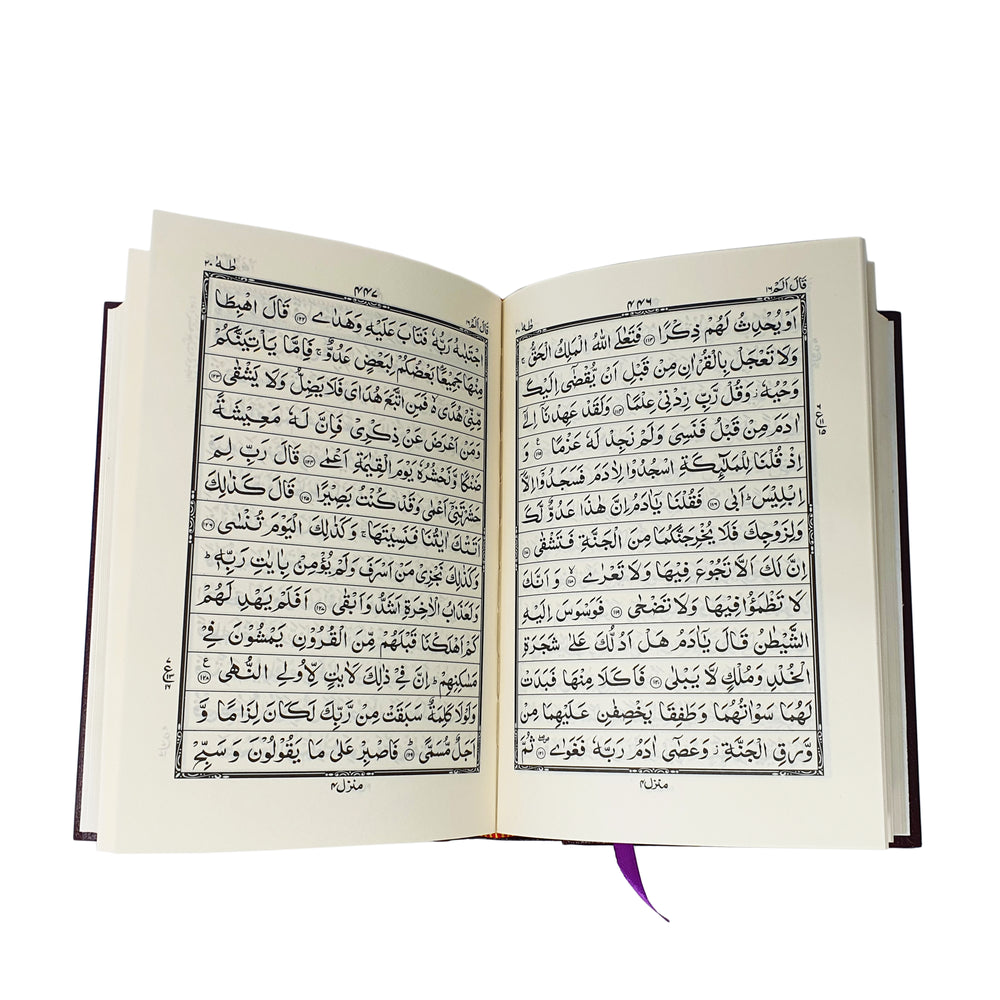 قَالَ اَلَمْ ١٦
٤٤٦
طٰهٰ ٢٠
اَوْ يُحْدِثُ لَهُمْ ذِكْرًا ﴿١١٣﴾ فَتَعٰلَى اللّٰهُ الْمَلِكُ الْحَقُّ ۚ
وَلَا تَعْجَلْ بِالْقُرْاٰنِ مِنْ قَبْلِ اَنْ يُّقْضٰۤى اِلَيْكَ
وَحْيُهٗ ؗ وَقُلْ رَّبِّ زِدْنِيْ عِلْمًا ﴿١١٤﴾ وَلَقَدْ عَهِدْنَاۤ اِلٰۤى
اٰدَمَ مِنْ قَبْلُ فَنَسِيَ وَلَمْ نَجِدْ لَهٗ عَزْمًا ﴿١١٥﴾ ع وَ
اِذْ قُلْنَا لِلْمَلٰٓئِكَةِ اسْجُدُوْا لِاٰدَمَ فَسَجَدُوْۤا اِلَّاۤ
اِبْلِيْسَ ؕ اَبٰى ﴿١١٦﴾ فَقُلْنَا يٰۤاٰدَمُ اِنَّ هٰذَا عَدُوٌّ لَّكَ
وَلِزَوْجِكَ فَلَا يُخْرِجَنَّكُمَا مِنَ الْجَنَّةِ فَتَشْقٰى ﴿١١٧﴾
اِنَّ لَكَ اَلَّا تَجُوْعَ فِيْهَا وَلَا تَعْرٰى ﴿١١٨﴾ وَ اَنَّكَ
لَا تَظْمَؤُا فِيْهَا وَلَا تَضْحٰى ﴿١١٩﴾ فَوَسْوَسَ اِلَيْهِ
الشَّيْطٰنُ قَالَ يٰۤاٰدَمُ هَلْ اَدُلُّكَ عَلٰى شَجَرَةِ
الْخُلْدِ وَمُلْكٍ لَّا يَبْلٰى ﴿١٢٠﴾ فَاَكَلَا مِنْهَا فَبَدَتْ
لَهُمَا سَوْاٰتُهُمَا وَطَفِقَا يَخْصِفٰنِ عَلَيْهِمَا مِنْ
وَّرَقِ الْجَنَّةِ ؗ وَعَصٰۤى اٰدَمُ رَبَّهٗ فَغَوٰى ﴿١٢١﴾ ثُمَّ
منزل ٤
طٰهٰ ٢٠
٤٤٧
قَالَ اَلَمْ ١٦
اجْتَبٰهُ رَبُّهٗ فَتَابَ عَلَيْهِ وَهَدٰى ﴿١٢٢﴾ قَالَ اهْبِطَا
مِنْهَا جَمِيْعًۢا بَعْضُكُمْ لِبَعْضٍ عَدُوٌّ ۚ فَاِمَّا يَاْتِيَنَّكُمْ
مِّنِّيْ هُدًى ۙ فَمَنِ اتَّبَعَ هُدَايَ فَلَا يَضِلُّ وَلَا يَشْقٰى ﴿١٢٣﴾
وَمَنْ اَعْرَضَ عَنْ ذِكْرِيْ فَاِنَّ لَهٗ مَعِيْشَةً
ضَنْكًا وَّنَحْشُرُهٗ يَوْمَ الْقِيٰمَةِ اَعْمٰى ﴿١٢٤﴾ قَالَ رَبِّ لِمَ
حَشَرْتَنِيْۤ اَعْمٰى وَقَدْ كُنْتُ بَصِيْرًا ﴿١٢٥﴾ قَالَ كَذٰلِكَ
اَتَتْكَ اٰيٰتُنَا فَنَسِيْتَهَا ۚ وَكَذٰلِكَ الْيَوْمَ تُنْسٰى ﴿١٢٦﴾
وَكَذٰلِكَ نَجْزِيْ مَنْ اَسْرَفَ وَلَمْ يُؤْمِنْۢ بِاٰيٰتِ رَبِّهٖ ؕ
وَلَعَذَابُ الْاٰخِرَةِ اَشَدُّ وَاَبْقٰى ﴿١٢٧﴾ اَفَلَمْ يَهْدِ لَهُمْ
كَمْ اَهْلَكْنَا قَبْلَهُمْ مِّنَ الْقُرُوْنِ يَمْشُوْنَ فِيْ
مَسٰكِنِهِمْ ؕ اِنَّ فِيْ ذٰلِكَ لَاٰيٰتٍ لِّاُولِي النُّهٰى ﴿١٢٨﴾ ع
وَلَوْلَا كَلِمَةٌ سَبَقَتْ مِنْ رَّبِّكَ لَكَانَ لِزَامًا وَّ
اَجَلٌ مُّسَمًّى ﴿١٢٩﴾ فَاصْبِرْ عَلٰى مَا يَقُوْلُوْنَ وَ سَبِّحْ
منزل ٤